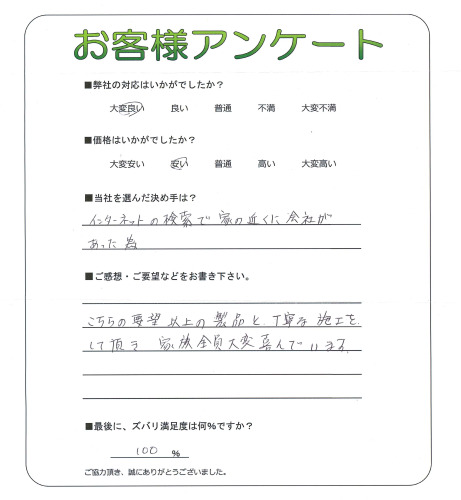 お客様アンケート
■弊社の対応はいかがでしたか？
大変良い 良い 普通 不満 大変不満
■価格はいかがでしたか？
大変安い 安い 普通 高い 大変高い
■当社を選んだ決め手は？
インターネットの検索で 家の近くに会社が
あった為
■ご感想・ご要望などをお書き下さい。
こちらの要望以上の製品と丁寧な施工を
して頂き 家族全員大変喜んでいます。
■最後に、ズバリ満足度は何％ですか？
100 ％
ご協力頂き、誠にありがとうございました。